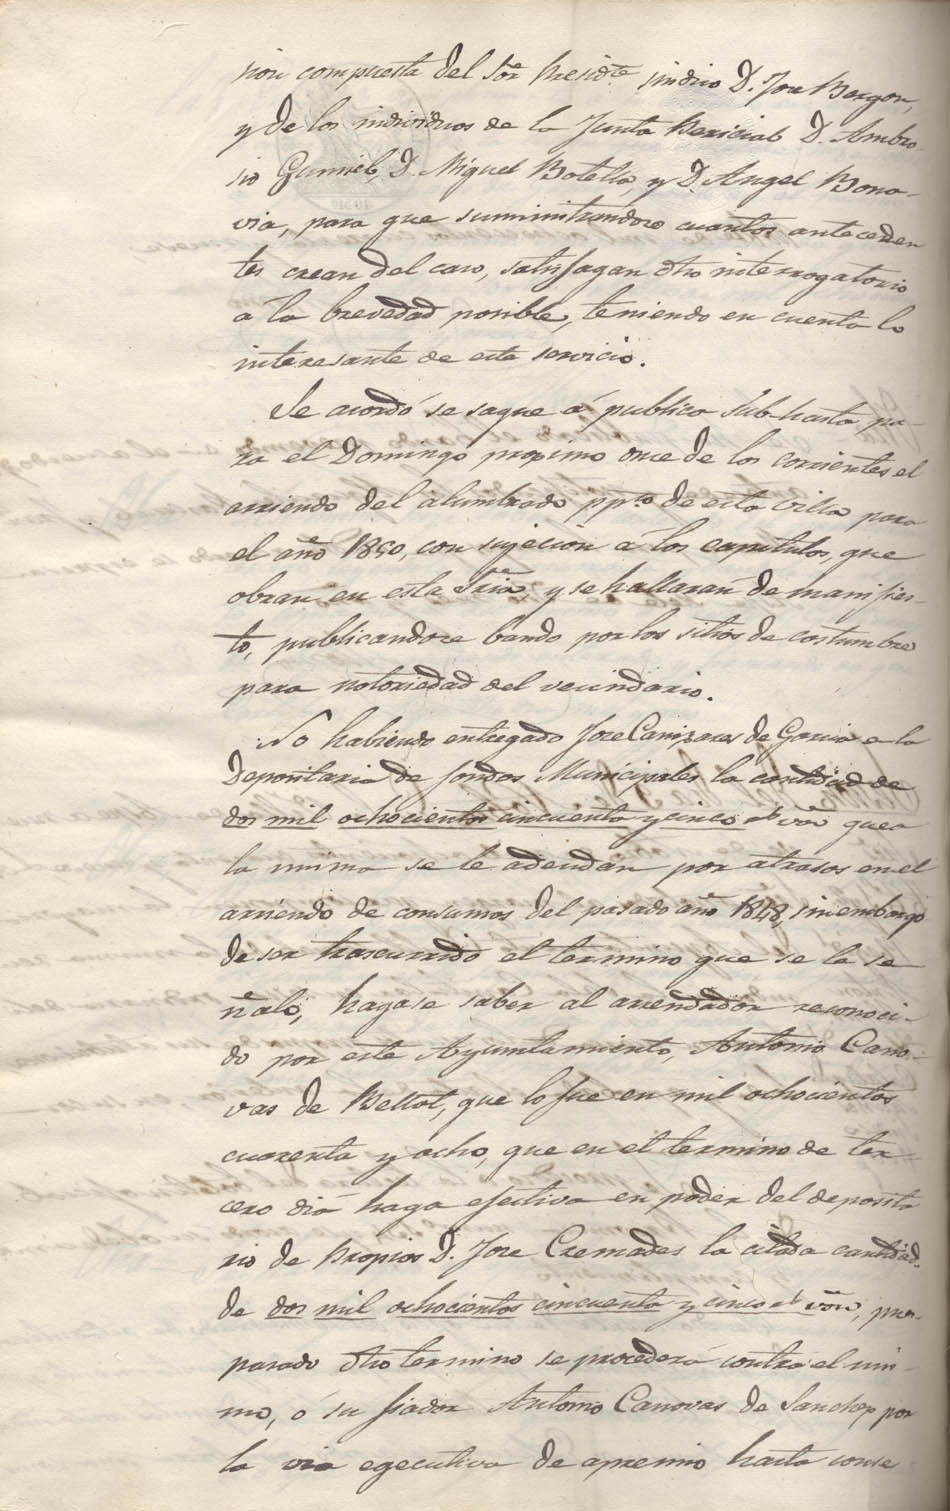 sion compuesta del Sõr Presidte sindico D. Jose Bergon,
y de los individuos de la Junta Pericial D. Ambro-
sio Gumiel, D. Miguel Botella y D. Angel Bona-
via, para que suministrandose cuantos anteceden
tes crean del caso, satisfagan dho interrogatorio
a la brevedad posible, teniendo en cuenta lo
interesante de este servicio.
Se acordó se saque á publica Sub-hasta pa-
ra el Domingo proximo once de los corrientes el
arriendo del alumbrado ppco de esta villa para
el año 1850, con sujecion á los capitulos, que
obran en esta Sria y se hallaran de manifies-
to, publicandose bando por los sitios de costumbre
para notoriedad del vecindario.
No habiendo entregado Jose Canizares de Garcia en la
Depositaria de fondos Municipales la cantidad de
dos mil ochocientos cincuenta y cinco rs von que a
la misma se le adeudan por atrasos en el
arriendo de consumos del pasado año 1848, sin embargo
de ser trascurrido el termino que se le se
ñaló, hagase saber al arrendador reconoci-
do por este Ayuntamiento, Antonio Cano-
vas de Bellot, que lo fue en mil ochocientos
cuarenta y ocho, que en el termino de ter
cero dia haga efectiva en poder del deposita
rio de Propios D. Jose Cremades la citada cantidad
de dos mil ochocientos cincuenta y cinco rs von, pues
pasado dho termino se procederá contra el mis-
mo, ó su fiador Antonio Canovas de Sanchez por
la via egecutiva de apremio hasta conse